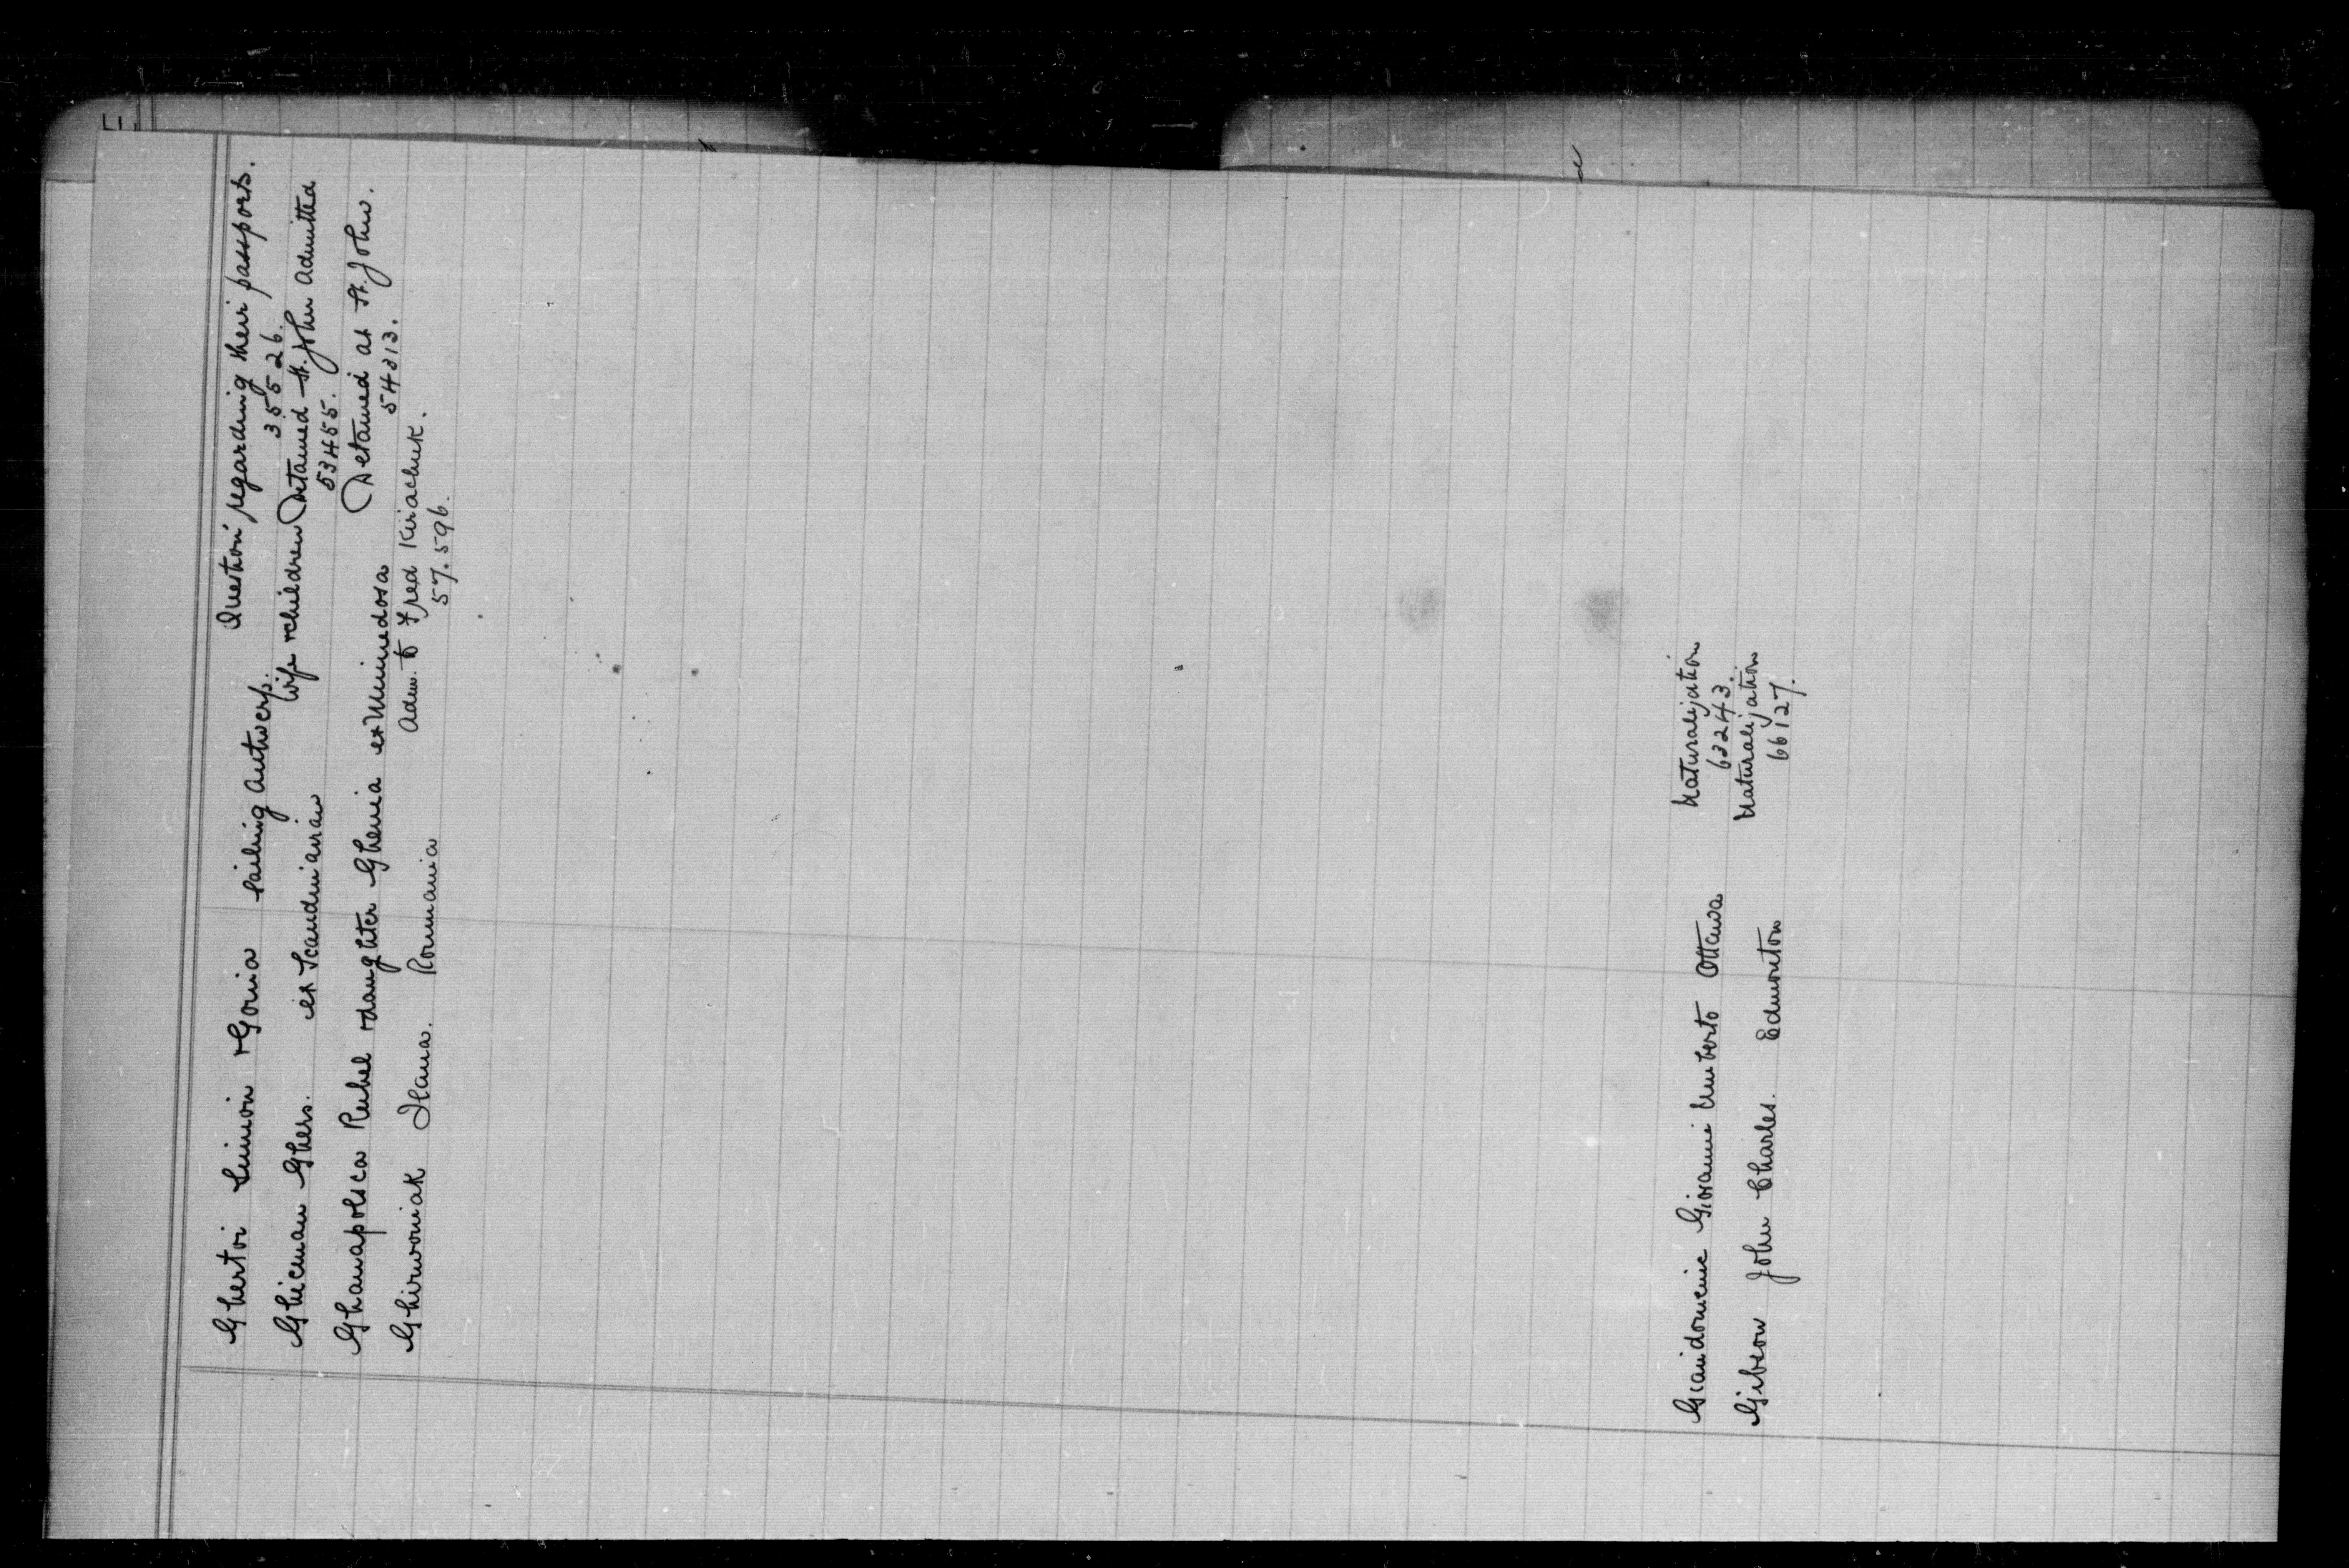 Ghertoi Simion & Gonia Sailing Antwerp. Question regarding their passports.
35526.
Ghicman Ghers. ex Scandinavian Wife & children Detained St. John Admitted
53455.
Ghamapolsca Ruhel & daughter Ghenia ex Minnedosa Detained at St. John.
54313.
Ghirwoniak Ilana. Roumania Adm. to Fred Kirachuk.
57.596.
Giaindomenic Giovanni Umberto Ottawa Naturalization
63243.
Gibson John Charles. Edmonton Naturalization
66127.